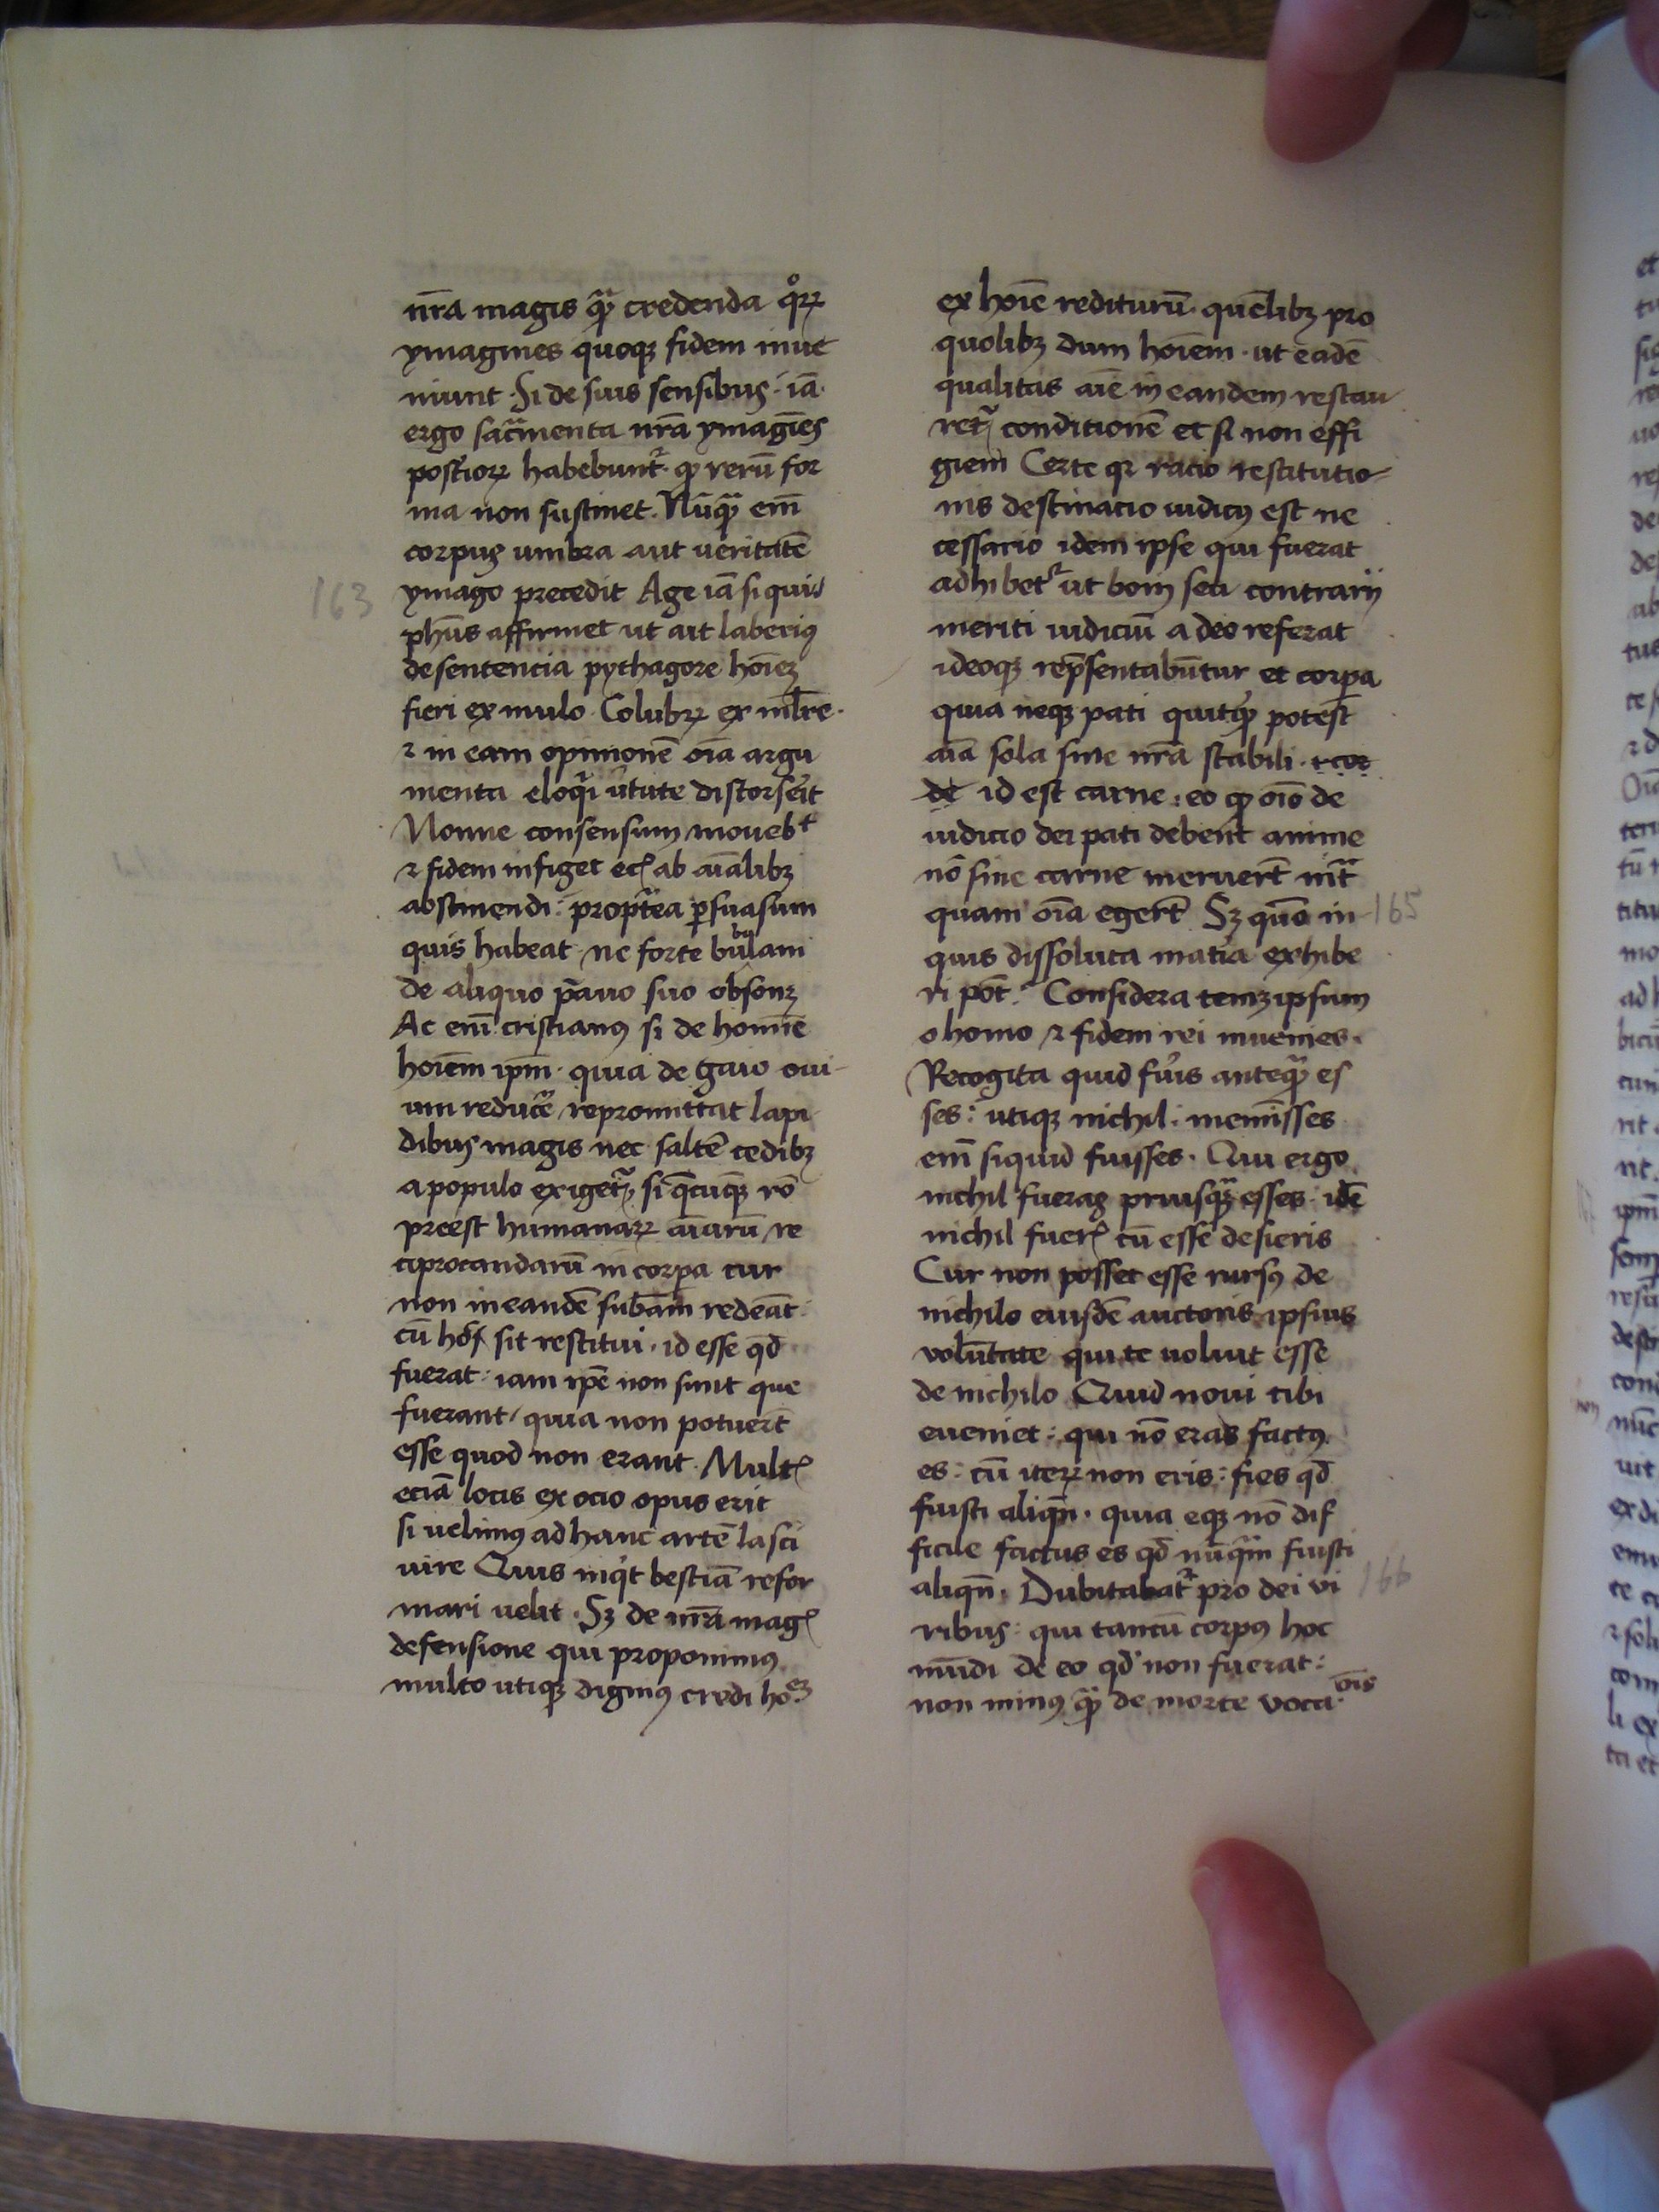 nr̄a magis qua̅ credenda qͦrꝝ
ymagines quoqꝫ fidem inue
niunt · Si de suis sensibus · ia̅ ·
ergo sac̅menta nr̄a ymagi̅es
post̅ioꝝ habebunt᷑ · qꝫ reru̅ for
ma non sustinet. Nu̅qua̅ em̅
corpus umbra aut ueritate̅
163
ymago precedit Age ia̅ si quis
ph̅us affirmet ut ait laberiꝰ
de sentencia pythagore ho̅iez
fieri ex mulo · Colubꝝ ex ml̅re ·
⁊ in eam opinione̅ o̅ia argu
menta eloq̅i u̅tute distorse̅it
Nonne consensum moueb᷑t
⁊ fidem infiget ec̅ ab a̅i̅alibꝫ
abstinendi : propt̅ea ꝑsuasum
quis habeat ne forte bu̅lam
bu
de aliquo p̅auo suo obsonꝫ
Ac em̅ cristianꝰ si de homi̅e
hoi̅em ipm̅ · quia de gaio oui-
um reduc̅e repromittat lapi
dibus magis nec salte̅ cedibꝫ
a populo exiget᷑ si q̅cu̅qꝫ ro̅
preest humanaꝝ a̅i̅aru̅ re
ciprocandaru̅ in corpa cur
non in eande̅ sub̅am redea̅t ·
cu̅ hoc sit restitui · id esse qd̅
fuerat : iam ipe̅ non sunt que
fuerant / quia non potuer̅t
esse quod non erant. Mult᷑
ecia̅ locis ex ocio opus erit
si uelimꝰ ad hanc arte̅ lasci
uire Quis inq̇t bestia̅ refor
mari uelit · Sꝫ de nr̄a mag᷑
defensione qui proponimꝰ
multo utiqꝫ dignꝰ credi hoᵉᶻ
ex hoi̅e rediturū · que̅libꝫ pro
quolibꝫ dum hoi̅em · ut eade̅
qualitas ai̅e in eandem restau
ret᷑ conditione̅ et si non effi
giem Certe qꝛ racio restitutio-
nis destinacio iudicij est ne
cessario idem ipse qui fuerat
adhibet᷑ ut boni seu contrarij
meriti iudiciu̅ a deo referat
ideoqꝫ rep̅sentabu̅tur et corpa
quia neqꝫ pati quitqꝫ potest
ai̅a sola sine mr̄a stabili · ⁊ cor
de id est carne : eo qꝫ oi̅o de
iudicio dei pati debent anime
no̅ sine carne meruer̅t int̅
165
quam oi̅a egert̅ Sꝫ quo̅ in-
quis dissoluta mat̅ia exhibe
ri po̅t. Considera temꝫipsum
o homo ⁊ fidem rei inuenies ·
Recogita quid fu̅is anteqꝫ es
ses : utiqꝫ nichil : memi̅sses
em̅ siquid fuisses · Qui ergo
nichil fueras priusqꝫ esses · ide̅
nichil fuer᷑ cu̅ esse desieris
Cur non posset esse rursꝰ de
nichilo eiusde̅ auctoris ipsius
volu̅tate qui te uoluit esse
de nichilo Quid noui tibi
eueniet : qui no̅ eras factꝰ
es : cu̅ iteꝝ non eris : fies qd̅
fuisti aliqn̅ · quia eqꝫ no̅ dif
ficile factus es qd̅ nu̅qua̅ fuisti
166
aliqn̅ · Dubitabat᷑ pro dei vi
ribus : qui tantu̅ corpꝰ hoc
mu̅di de eo qd̅ non fuerat :
non minꝰ qua̅ de morte voca ·
o̅is